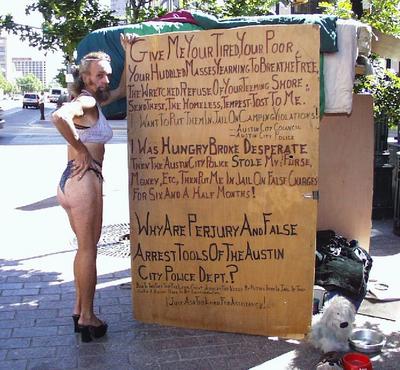 Give Me Your Tired Your Poor,
Your Huddled Masses Yearning To Breathe Free,
The Wretched Refuse Of Your Teeming Shore.
Send These, The Homeless, Tempest Tost To Me.
I Want To Put Them In Jail On Camping Violations!
- Austin City Council
- Austin City Police
I Was Hungry Broke Desperate
Then The Austin City Police Stole My: Purse,
Money, Etc, Then Put Me In Jail On False Charges
For Six And A Half Months!
Why Are Perjury And False
Arrest Tools Of The Austin
City Police Dept.?